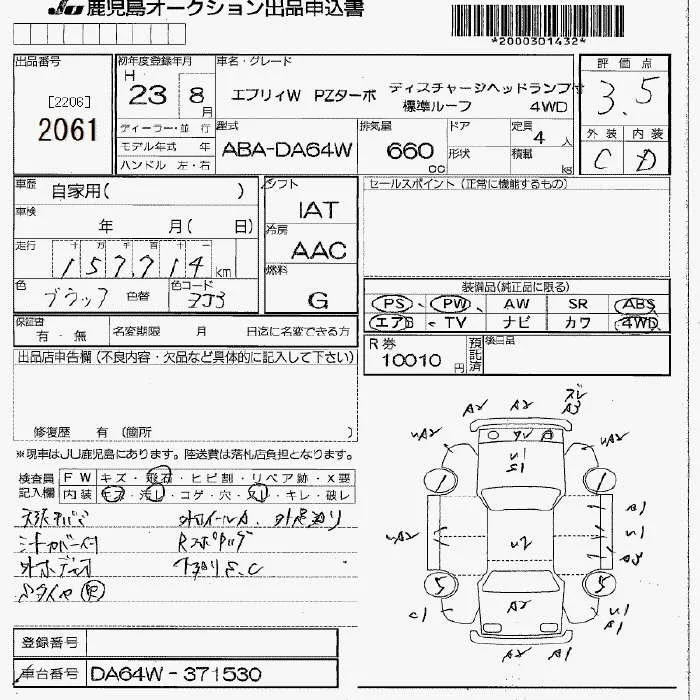 JU 鹿児島オークション出品申込書
*2000301432*
出品番号
[2206]
2061
初年度登録年月
H 23 8 月
ディーラー・並 行
モデル年式 年
ハンドル 左・右
車名・グレード
エブリィW PZターボ ディスチャージヘッドランプ付
標準ルーフ 4WD
型式
ABA-DA64W
排気量
660 cc
ドア
形状
定員
4 人
積載 kg
評価点
3.5
外装 内装
C D
車歴 自家用( )
車検
年 月( 日)
走行 十 万 千 百 十
157,714 km
色 ブラック 色替
色コード
ZJ3
シフト
IAT
冷房
AAC
燃料
G
セールスポイント(正常に機能するもの)
装備品(純正品に限る)
PS、 PW、 AW SR ABS
エアB ・TV ナビ カワ 4WD
保証書
有・無
名変期限 月 日迄に名変できる方
R券
10010 円
預託済
後日品
出品店申告欄(不良内容・欠品など具体的に記入して下さい)
修復歴 有 (箇所 )
※現車はJU鹿児島にあります。陸送費は落札店負担となります。
検査員
記入欄
FW キズ・飛石・ヒビ割・リペア跡・X要
内装 キズ・汚レ・コゲ・穴・スレ・キレ・破レ
A2 A2 スレ
A3
UA2 UA2
U1
1 1
A1
UA2 U2 U1
A3
5 5
C1 A2 U1
A1
A2 A1
登録番号
車台番号 DA64W-371530